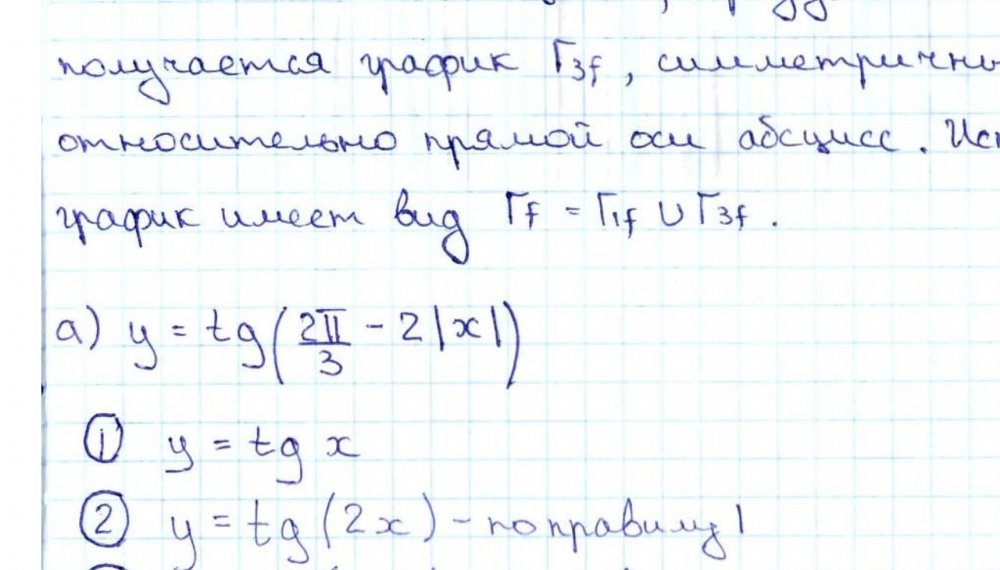 получается график Γ₃f, симметричны
относительно прямой оси абсцисс. Ист
график имеет вид Γf = Γ₁f ∪ Γ₃f.
а) y = tg(2π/3 - 2|x|)
① y = tg x
② y = tg(2x) - по правилу 1